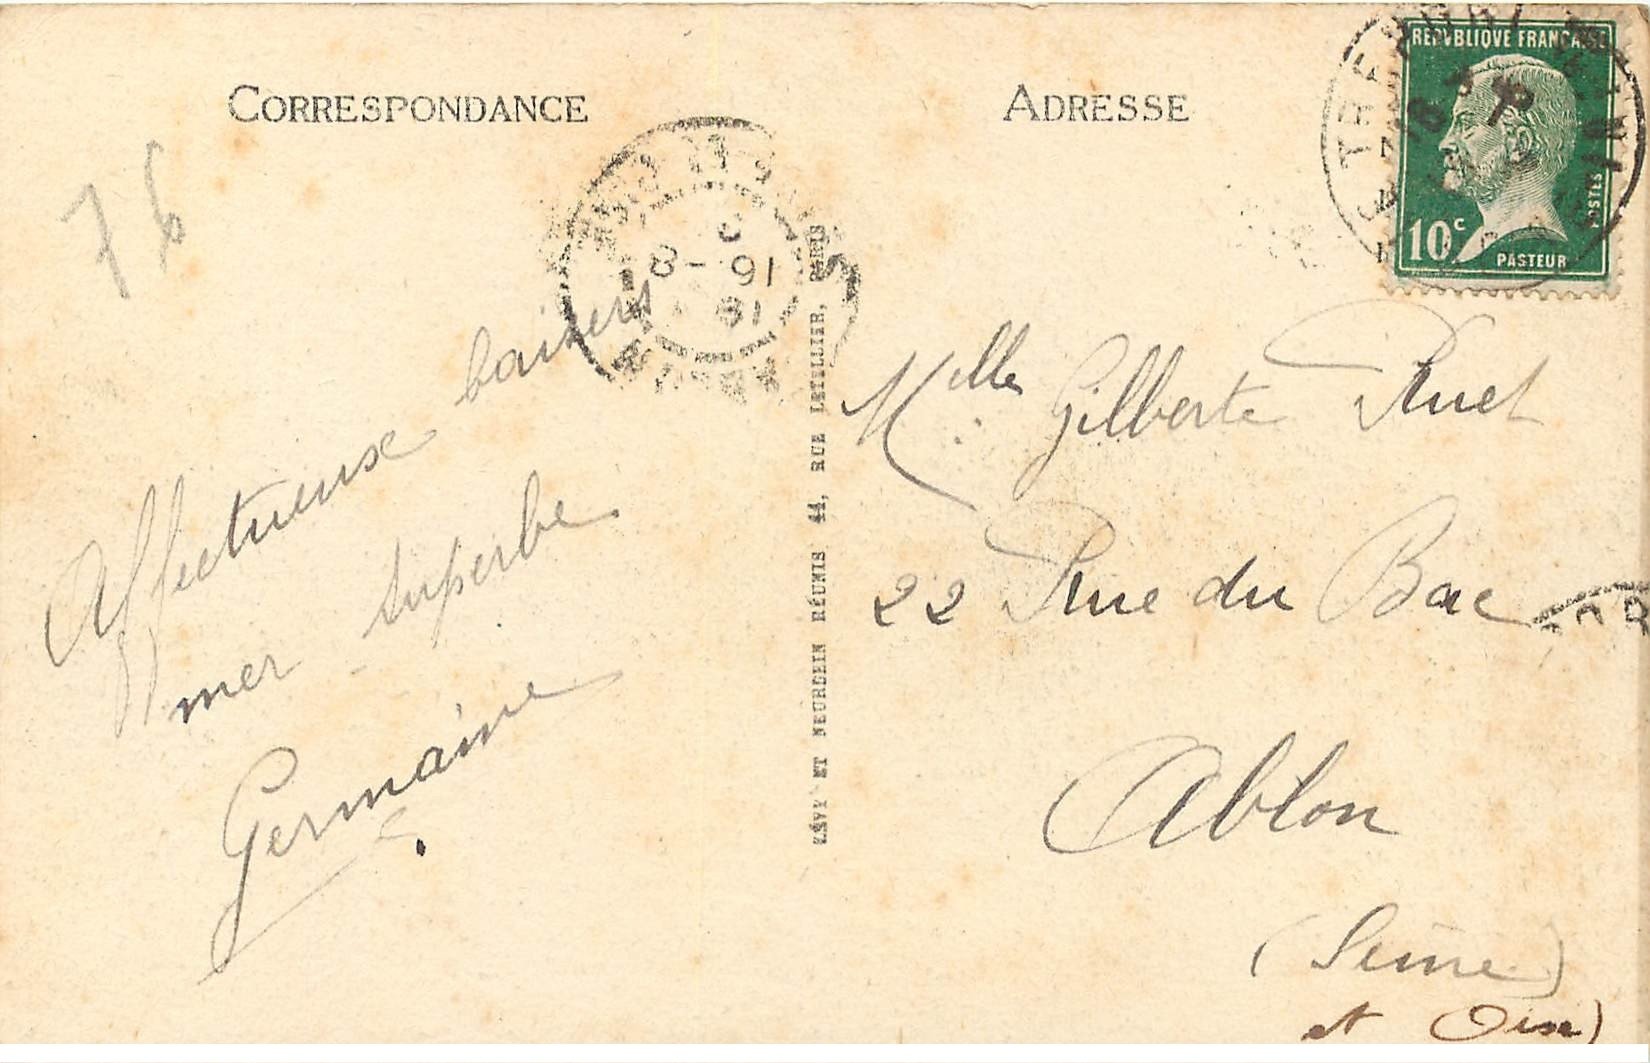 CORRESPONDANCE
76
Affectueux baisers
mer superbe
Germaine
LÉVY ET NEURDEIN RÉUNIS 44, RUE LETELLIER, PARIS
ADRESSE
REPVBLIQVE FRANÇAISE
POSTES
10c
PASTEUR
16 - 8
Melle Gilberte Ruet
22 Rue du Bac
Ablon
(Seine)
et Oise)